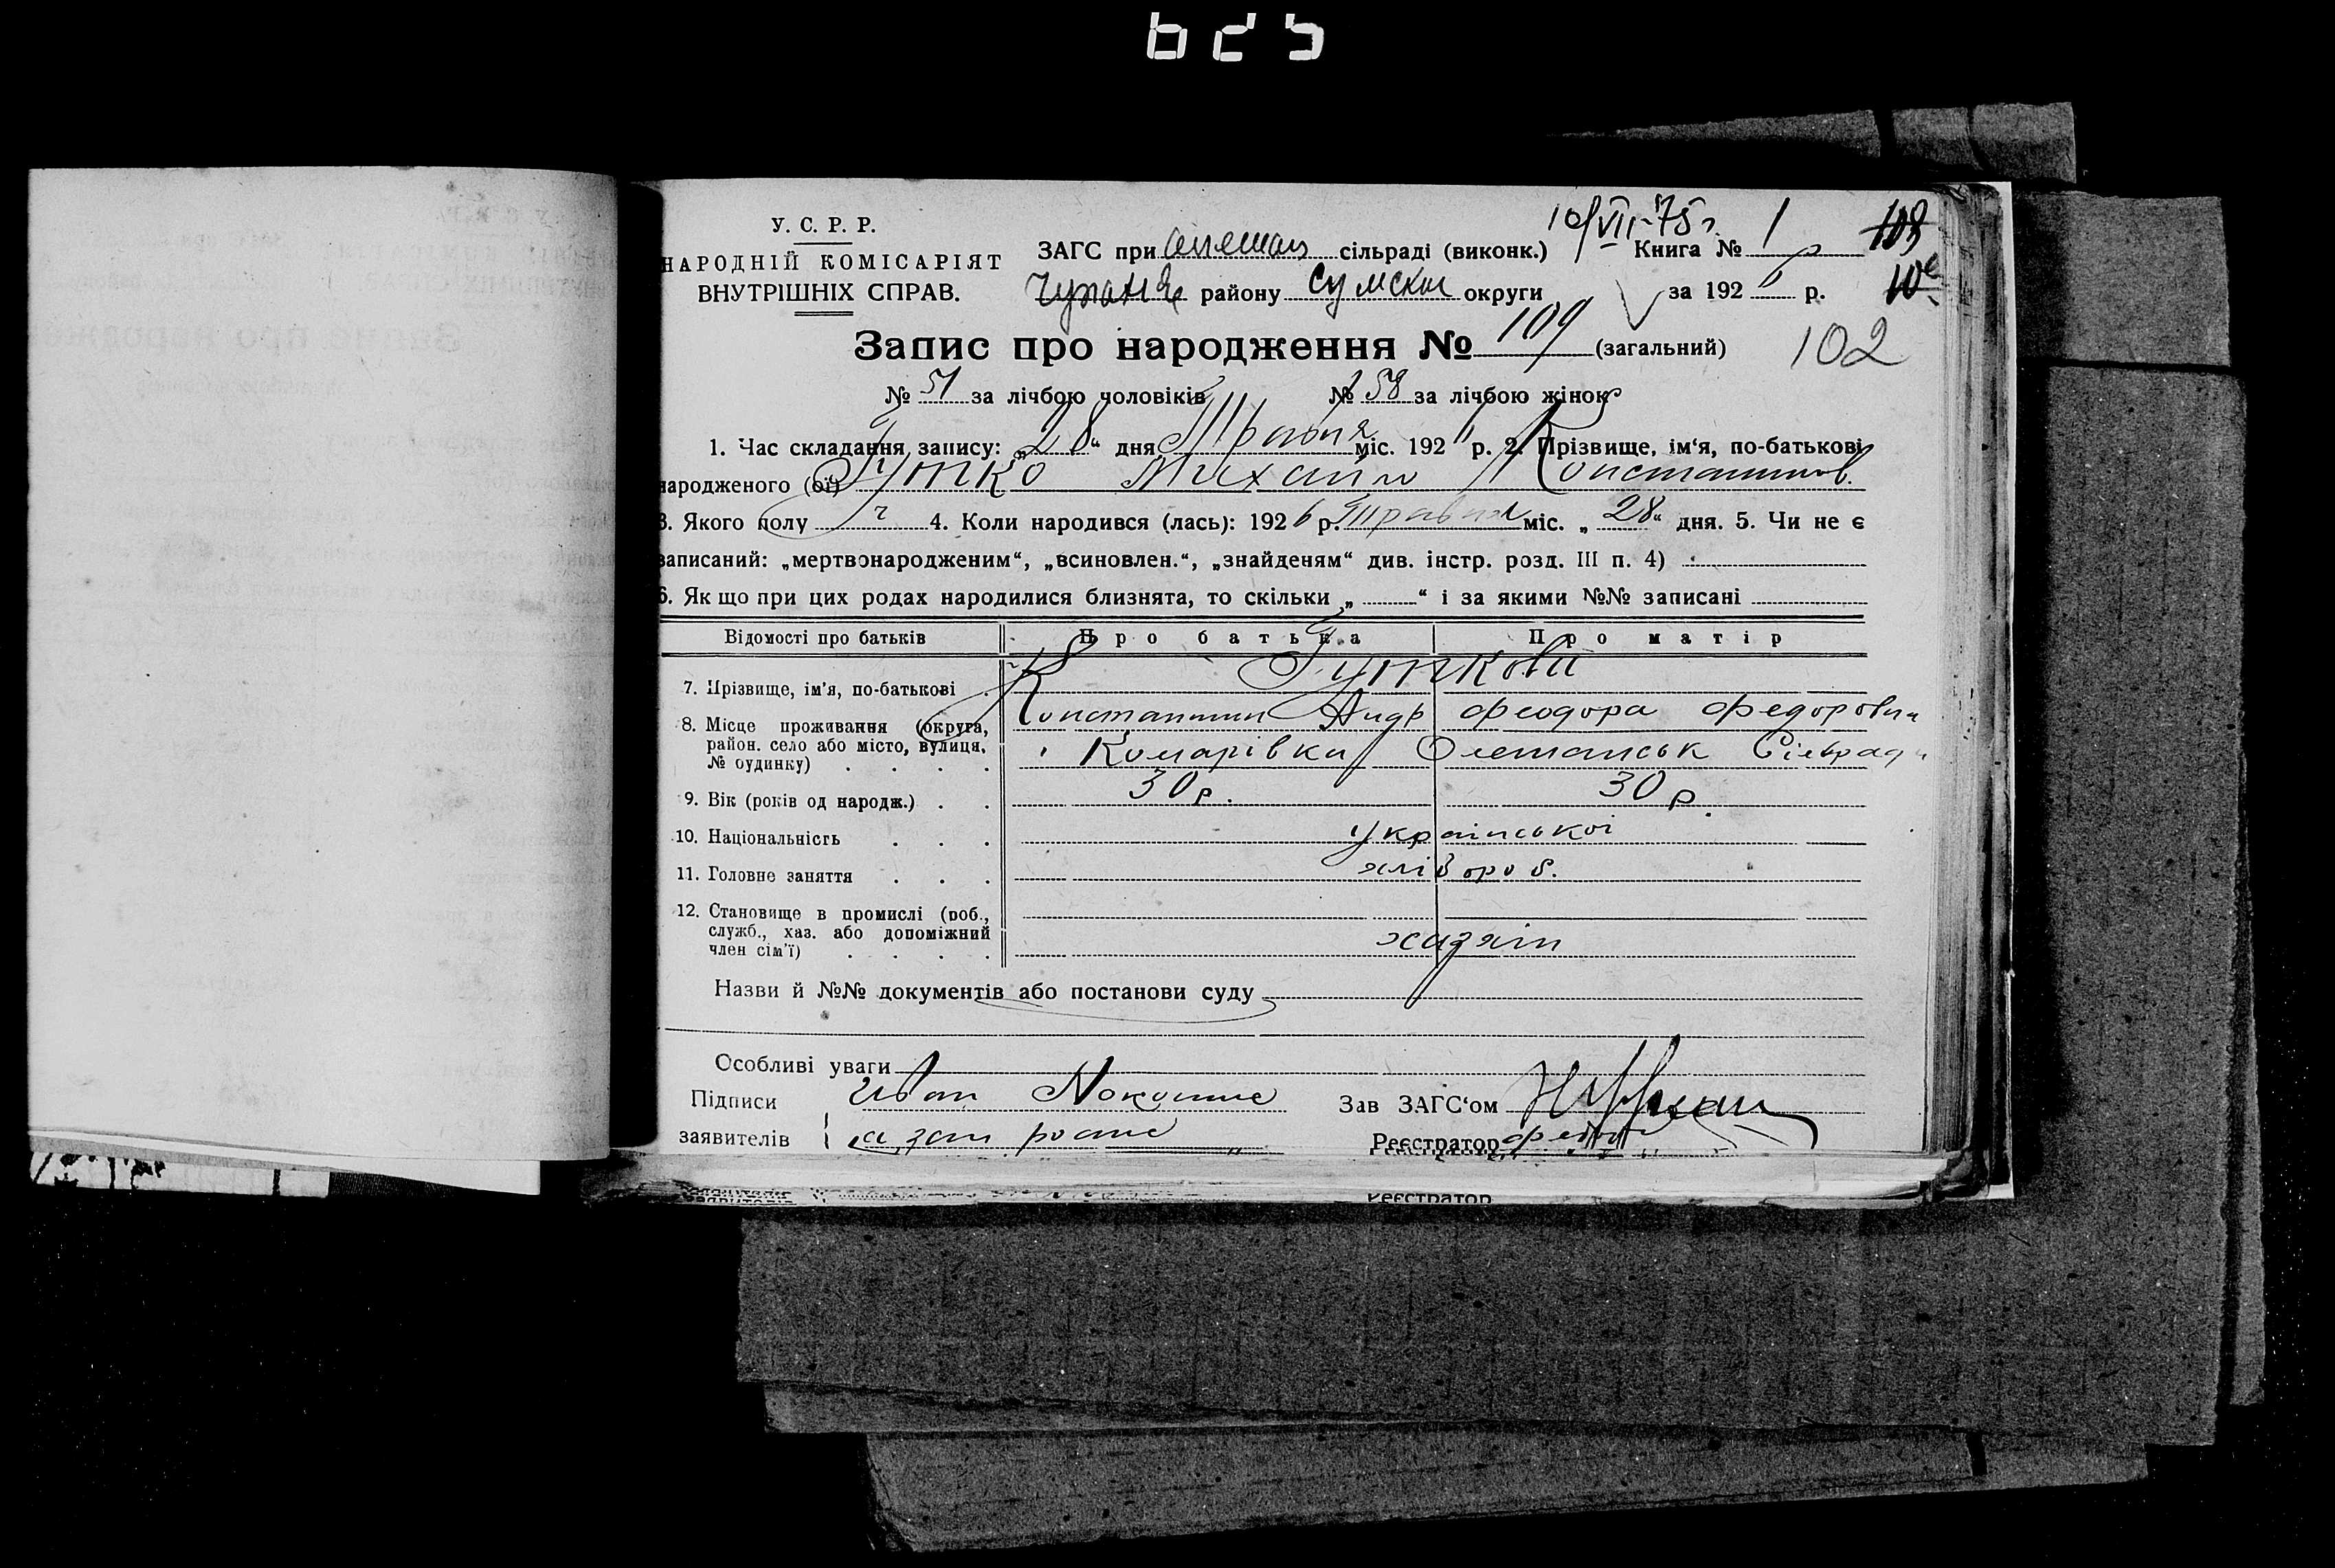 625
У. С. Р. Р.
НАРОДНІЙ КОМІСАРІЯТ
ВНУТРІШНІХ СПРАВ.
10/VII-75 г.
ЗАГС при сільраді (виконк.) Книга № 1
району Сумської округи за 1926 р.
Запис про народження № 109 (загальний) 102
№ 51 за лічбою чоловіків № 58 за лічбою жінок
1. Час складання запису: „28“ дня Травня міс. 192 р. 2. Прізвище, ім‘я, по-батькові
народженого (ої) Гутко Михайло Константинов.
3. Якого полу ч 4. Коли народився (лась): 1926 р. Травня міс. „28“ дня. 5. Чи не є
записаний: „мертвонародженим“, „всиновлен.“, „знайденям“ див. інстр. розд. III п. 4)
6. Як що при цих родах народилися близнята, то скільки „ “ і за якими №№ записані
Відомості про батьків Про батька Про матір
7. Прізвище, ім'я, по-батькові Гуткови
Константин Андр Феодора Федоровна
8. Місце проживання (округа, район. село або місто, вулиця, № будинку) Комарівка Сільради
9. Вік (років од народж.) 30 р. 30 р.
10. Національність української
11. Головне заняття хлібороб.
12. Становище в промислі (роб., служб., хаз. або допоміжний член сім'ї) хазяїн
Назви й №№ документів або постанови суду
Особливі уваги
Підписи Иван
заявителів
Зав ЗАГС‘ом
Реєстратор
Реєстратор